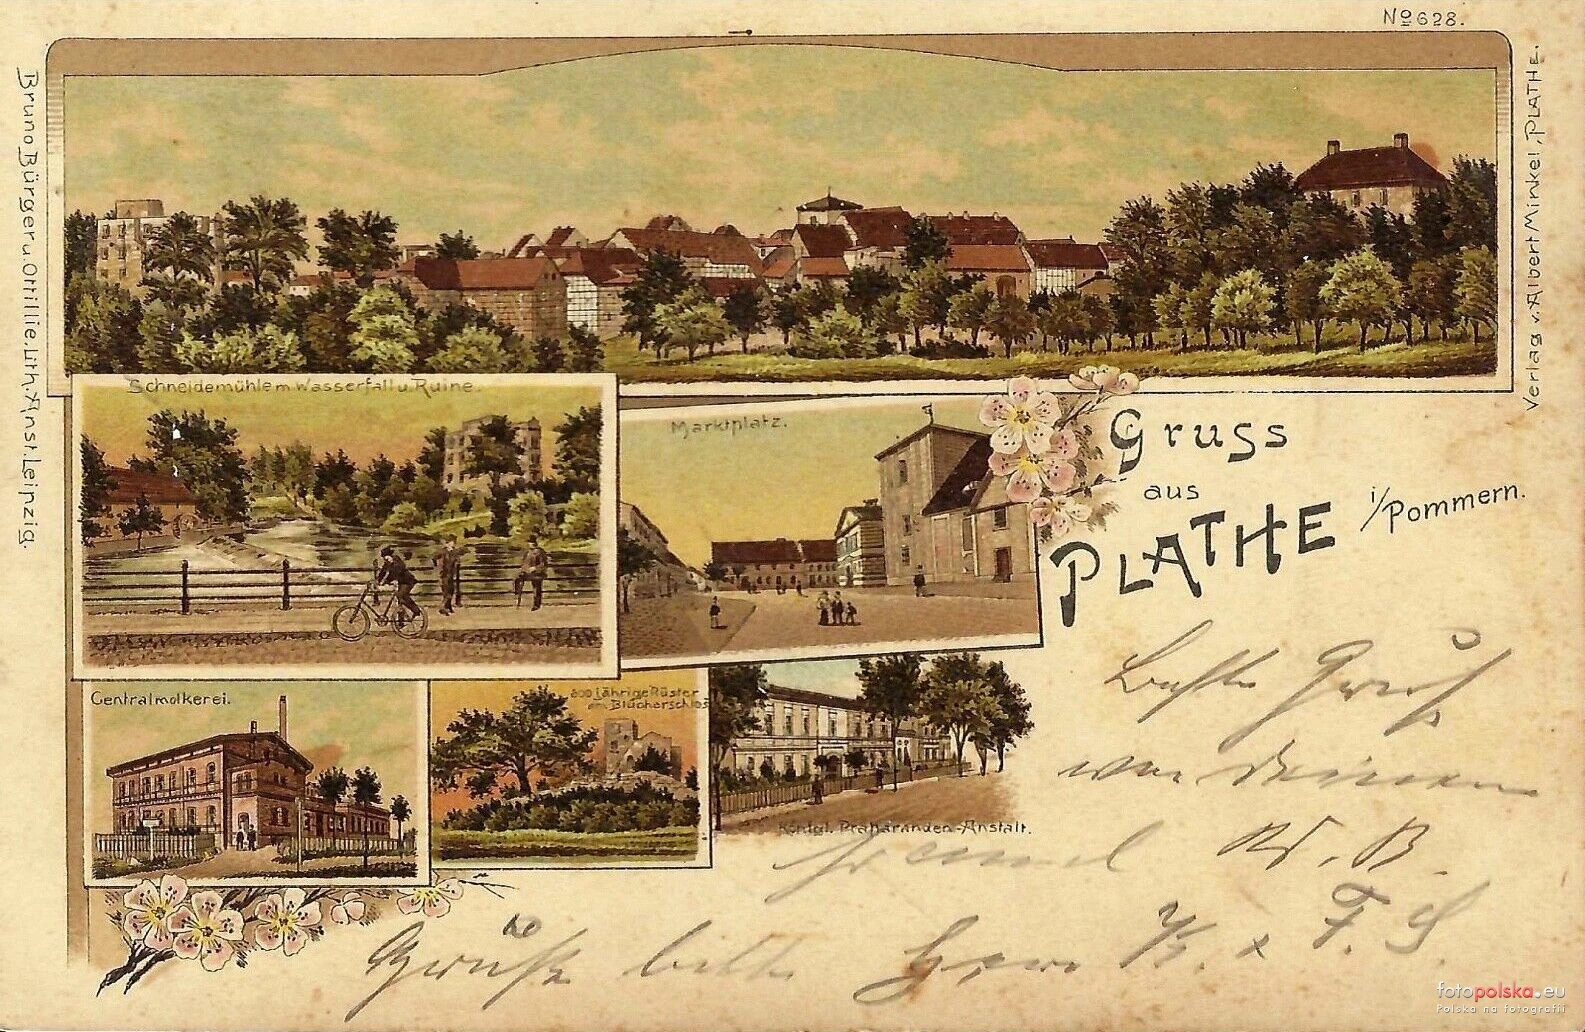 No 628.
Bruno Bürger u. Ottillie. Lith. Anst. Leipzig.
Verlag v. Albert Minkel, PLATHE.
Schneidemühle m. Wasserfall u. Ruine.
Marktplatz.
Gruss
aus
PLATHE i/Pommern.
Centralmolkerei.
800 jährige Rüster
am Blücherschloß
Königl. Präparanden-Anstalt.
Beste Gruß
von Deinem
Freund W. B.
Grüße bitte F. S.
fotopolska.eu
Polska na fotografii